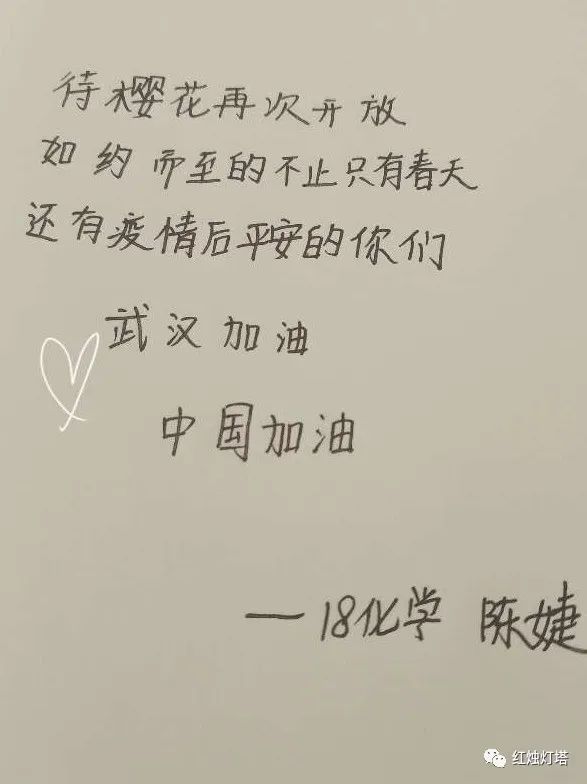 待樱花再次开放
如约而至的不止只有春天
还有疫情后平安的你们
武汉加油
中国加油
—18化学 陈婕
红烛灯塔